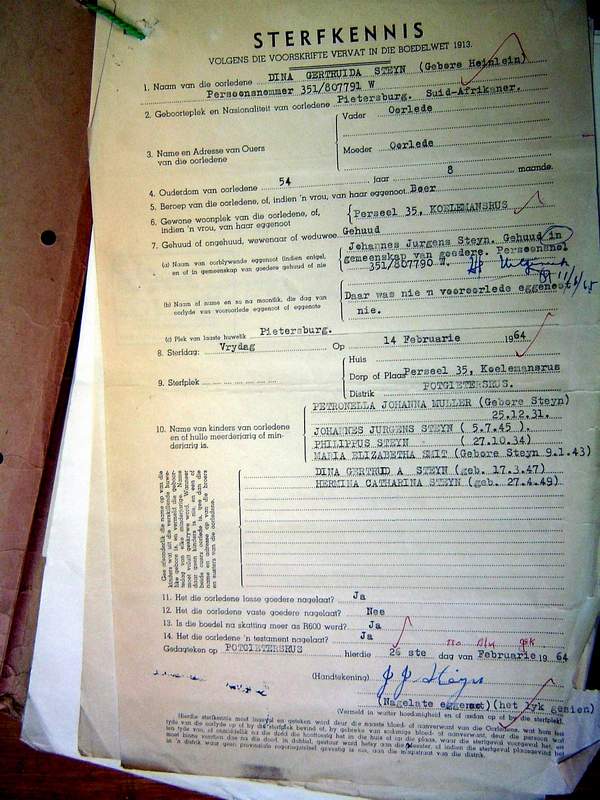 STERFKENNIS
VOLGENS DIE VOORSKRIFTE VERVAT IN DIE BOEDELWET 1913.
1. Naam van die oorledene DINA GERTRUIDA STEYN (Gebore Heinlein)
Persoonsnommer 351/807791 W
2. Geboorteplek en Nasionaliteit van oorledene Pietersburg. Suid-Afrikaner.
3. Name en Adresse van Ouers van die oorledene
Vader Oorlede
Moeder Oorlede
4. Ouderdom van oorledene 54 jaar 8 maande.
5. Beroep van die oorledene, of, indien 'n vrou, van haar eggenoot Boer
6. Gewone woonplek van die oorledene, of, indien 'n vrou, van haar eggenoot
Perseel 35, KOELEMANSRUS
7. Gehuud of ongehuud, wewenaar of weduwee Gehuud
(a) Naam van oorblywende eggenoot (indien enige), en of in gemeenskap van goedere gehuud of nie
Johannes Jurgens Steyn. Gehuud in
gemeenskap van goedere. Persoonsnol
351/807790 W.
(b) Naam of name en so na moontlik, die dag van oorlyde van vooroorlede eggenoot of eggenote
Daar was nie 'n vooroorlede eggenoot
nie.
(c) Plek van laaste huwelik Pietersburg.
8. Sterfdag: Vrydag Op 14 Februarie 1964
9. Sterfplek
Huis
Dorp of Plaas Perseel 35, Koelemansrus
Distrik POTGIETERSRUS.
10. Name van kinders van oorledene en of hulle meerderjarig of minderjarig is.
PETRONELLA JOHANNA MULLER (Gebore Steyn)
25.12.31.
JOHANNES JURGENS STEYN ( 5.7.45 ).
PHILIPPUS STEYN ( 27.10.34)
MARIA ELIZABETHA SMIT (Gebore Steyn 9.1.43)
DINA GERTRUD A STEYN (geb. 17.3.47)
HERMINA CATHARINA STEYN (geb. 27.4.49)
11. Het die oorledene losse goedere nagelaat? Ja
12. Het die oorledene vaste goedere nagelaat? Nee
13. Is die boedel na skatting meer as R600 werd? Ja
14. Het die oorledene 'n testament nagelaat? Ja
Gedagteken op POTGIETERSRUS hierdie 26 ste dag van Februarie 1964
(Handtekening) J J Steyn
(Nagelate eggenoot) (het lyk gesien)
(Vermeld in watter hoedanigheid en of aldan op of by die sterfplek).